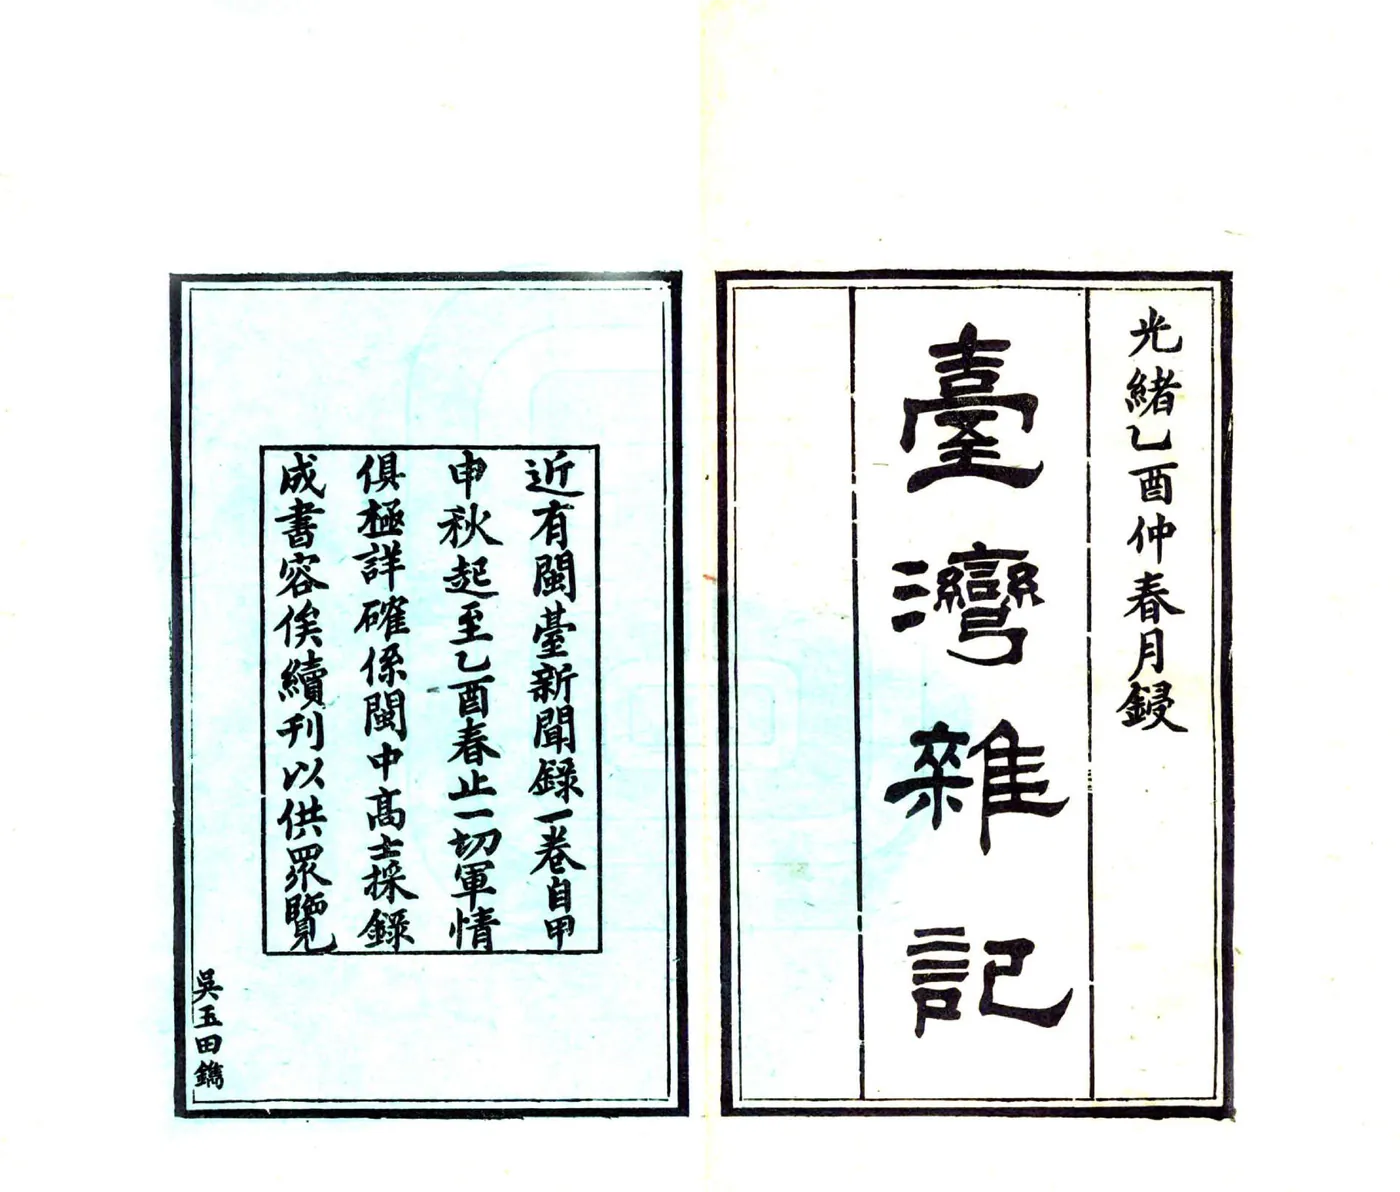 光緒乙酉仲春月鋟
臺灣雜記
近有閩臺新聞錄一卷自甲
申秋起至乙酉春止一切軍情
俱極詳確係閩中高士採錄
成書容俟續刊以供眾覽
吳玉田鐫